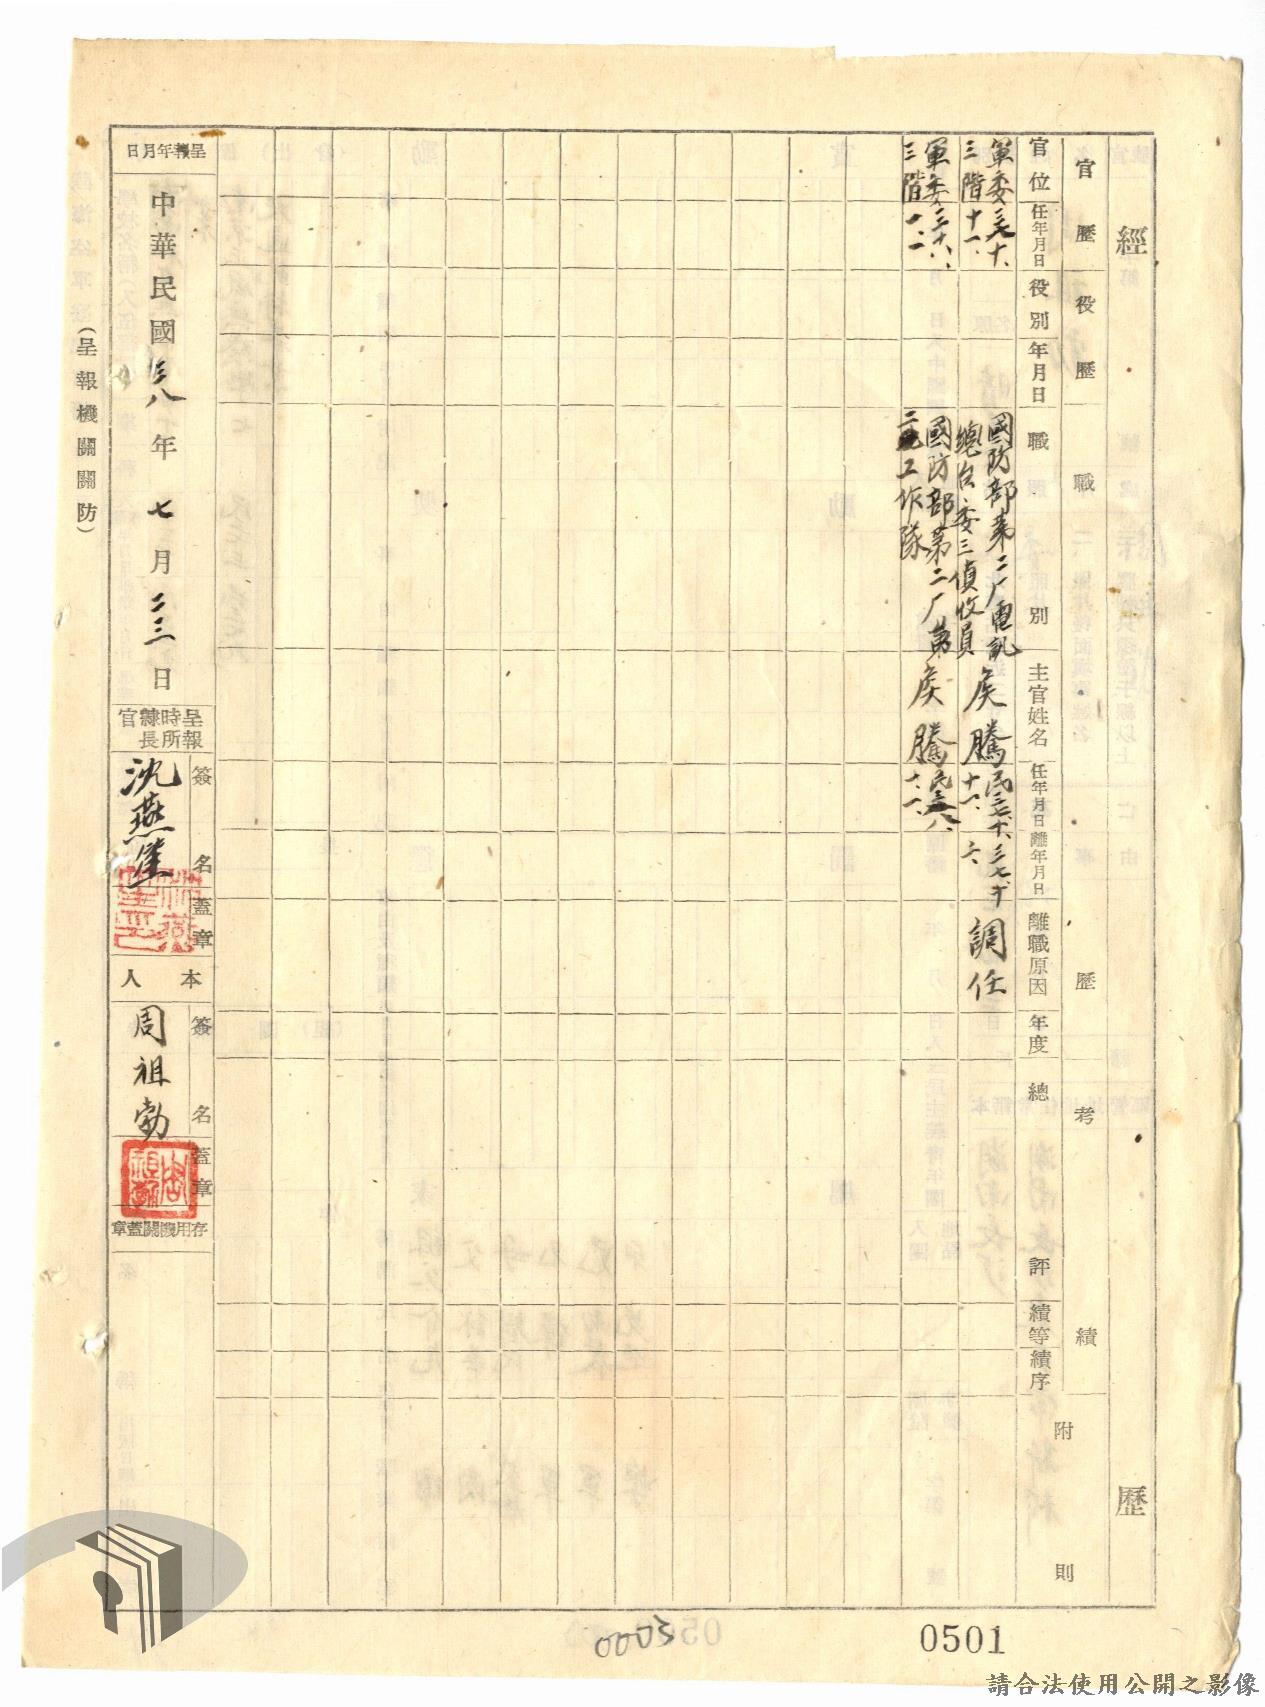 經歷
官歷
役歷
職歷
考績
附則
官位
任年月日
役別
年月日
職別
主官姓名
任年月日
離年月日
離職原因
年度
總評
績等
績序
軍委
三階
三七、十、
十一、
國防部第二厂電訊
總台委三偵收員
侯騰
民三七、十、
十一、
調任
軍委
三階
國防部第二厂第
工作隊
侯騰
呈報年月日
中華民國卅八年七月二三日
呈報時隸所官長
簽名蓋章
沈燕
本人
簽名蓋章
周祖勃
存用機關蓋章
(呈報機關關防)
0003
0501
請合法使用公開之影像